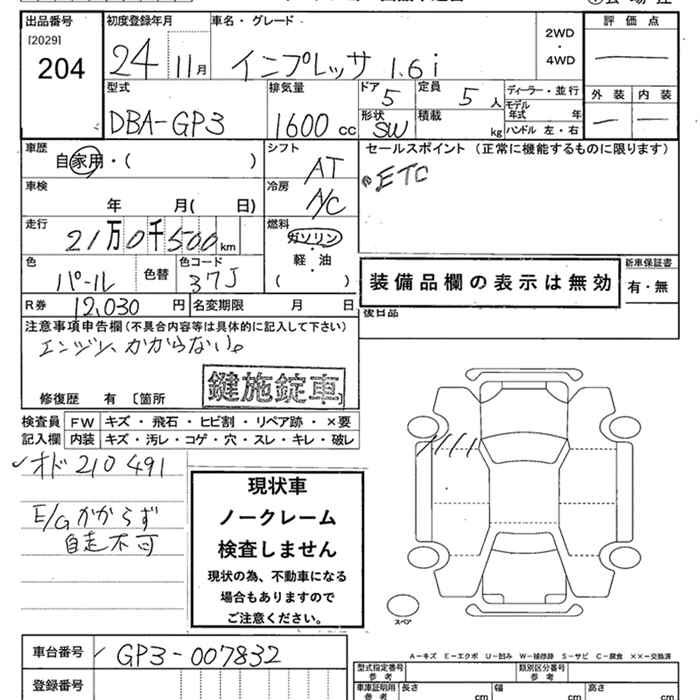 出品番号 初度登録年月 車名・グレード 評価点
[2029]
204 24 11月 インプレッサ 1.6i 2WD・4WD
型式 排気量 ドア 定員 ディーラー・並行 外装 内装
DBA-GP3 1600 cc 5 5 人 モデル年式 年
形状 SW 積載 kg ハンドル 左・右
車歴 シフト セールスポイント (正常に機能するものに限ります)
自家用・( ) AT ETC
車検 冷房
年 月( 日) A/C
走行 燃料
21万0千500km ガソリン・軽・油
( )
色 色替 色コード 新車保証書
パール 37J 装備品欄の表示は無効 有・無
R券 12,030 円 名変期限 月 日 後日品
注意事項申告欄(不具合内容等は具体的に記入して下さい)
エンジンかからない。
修復歴 有 〔箇所 鍵施錠車
検査員 FW キズ・飛石・ヒビ割・リペア跡・×要
記入欄 内装 キズ・汚レ・コゲ・穴・スレ・キレ・破レ
オド210491
現状車
E/Gかからず ノークレーム
自走不可 検査しません
現状の為、不動車になる
場合もありますので
ご注意ください。
スペア
A−キズ E−エクボ U−凹み W−補修跡 S−サビ C−腐食 ××−交換済
車台番号 GP3-007832
型式指定番号 参考 類別区分番号 参考
登録番号 車庫証明用 参考 長さ cm 幅 cm 高さ cm